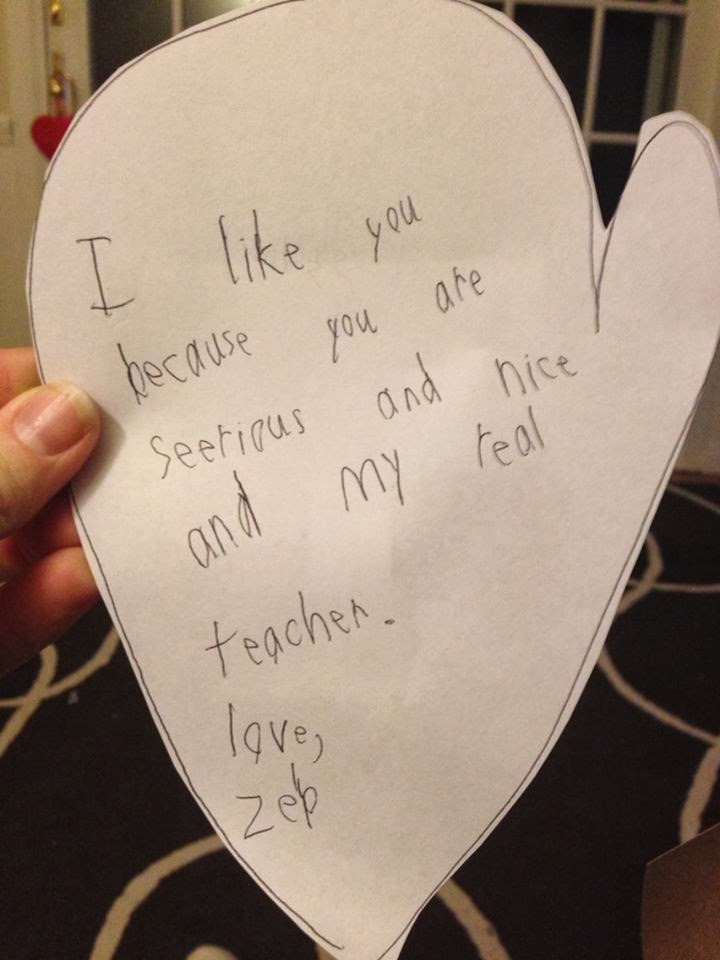 I like you
because you are
seerious and nice
and my real
teacher.
love,
zeb